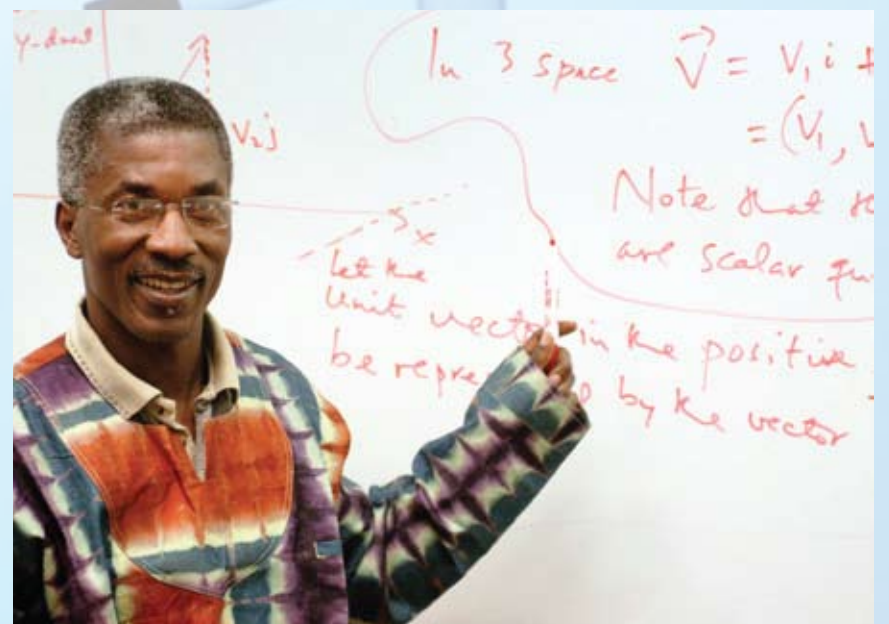 y-
V₂j
x
In 3 space V⃗ = V₁i +
= (V₁,
Note that
are scalar
let the
Unit vector in the positive
be repre by the vector